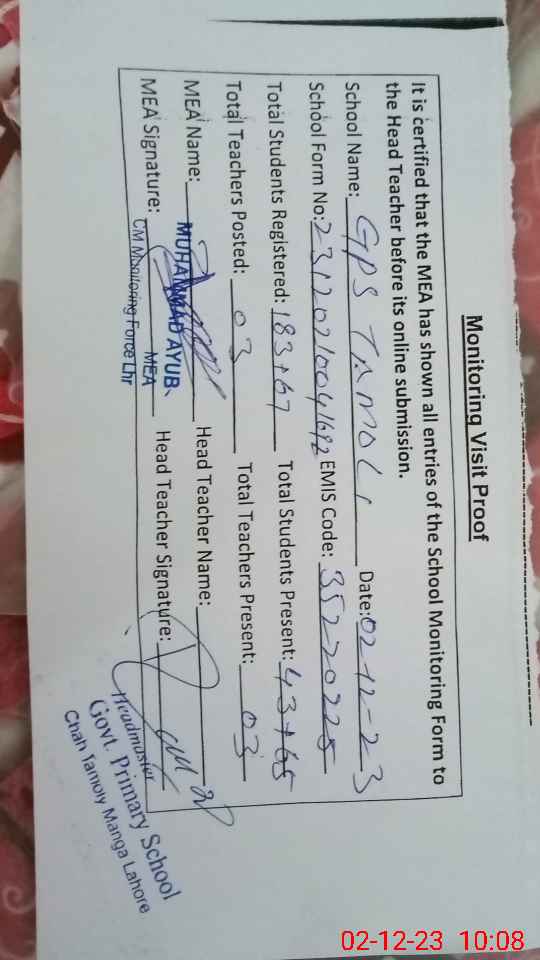 Monitoring Visit Proof
It is certified that the MEA has shown all entries of the School Monitoring Form to
the Head Teacher before its online submission.
School Name: GPS TAMOLI Date: 02-12-23
School Form No: 23120210041692 EMIS Code: 35220225
Total Students Registered: 183+67 Total Students Present: 43+65
Total Teachers Posted: 03 Total Teachers Present: 03
MEA Name: MUHAMMAD AYUB Head Teacher Name:
MEA Signature: MEA Head Teacher Signature:
CM Monitoring Force Lhr
Headmaster
Govt. Primary School
Chah Tamoly Manga Lahore
02-12-23 10:08